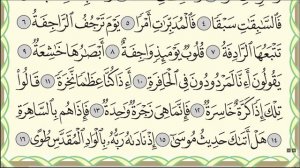 فَالسَّابِقَاتِ سَبْقًا ٤ فَالْمُدَبِّرَاتِ أَمْرًا ٥ يَوْمَ تَرْجُفُ الرَّاجِفَةُ ٦
تَتْبَعُهَا الرَّادِفَةُ ٧ قُلُوبٌ يَوْمَئِذٍ وَاجِفَةٌ ٨ أَبْصَارُهَا خَاشِعَةٌ ٩
يَقُولُونَ أَءِنَّا لَمَرْدُودُونَ فِي الْحَافِرَةِ ١٠ أَءِذَا كُنَّا عِظَامًا نَخِرَةً ١١ قَالُوا
تِلْكَ إِذًا كَرَّةٌ خَاسِرَةٌ ١٢ فَإِنَّمَا هِيَ زَجْرَةٌ وَاحِدَةٌ ١٣ فَإِذَا هُم بِالسَّاهِرَةِ
١٤ هَلْ أَتَاكَ حَدِيثُ مُوسَى ١٥ إِذْ نَادَاهُ رَبُّهُ بِالْوَادِ الْمُقَدَّسِ طُوًى ١٦